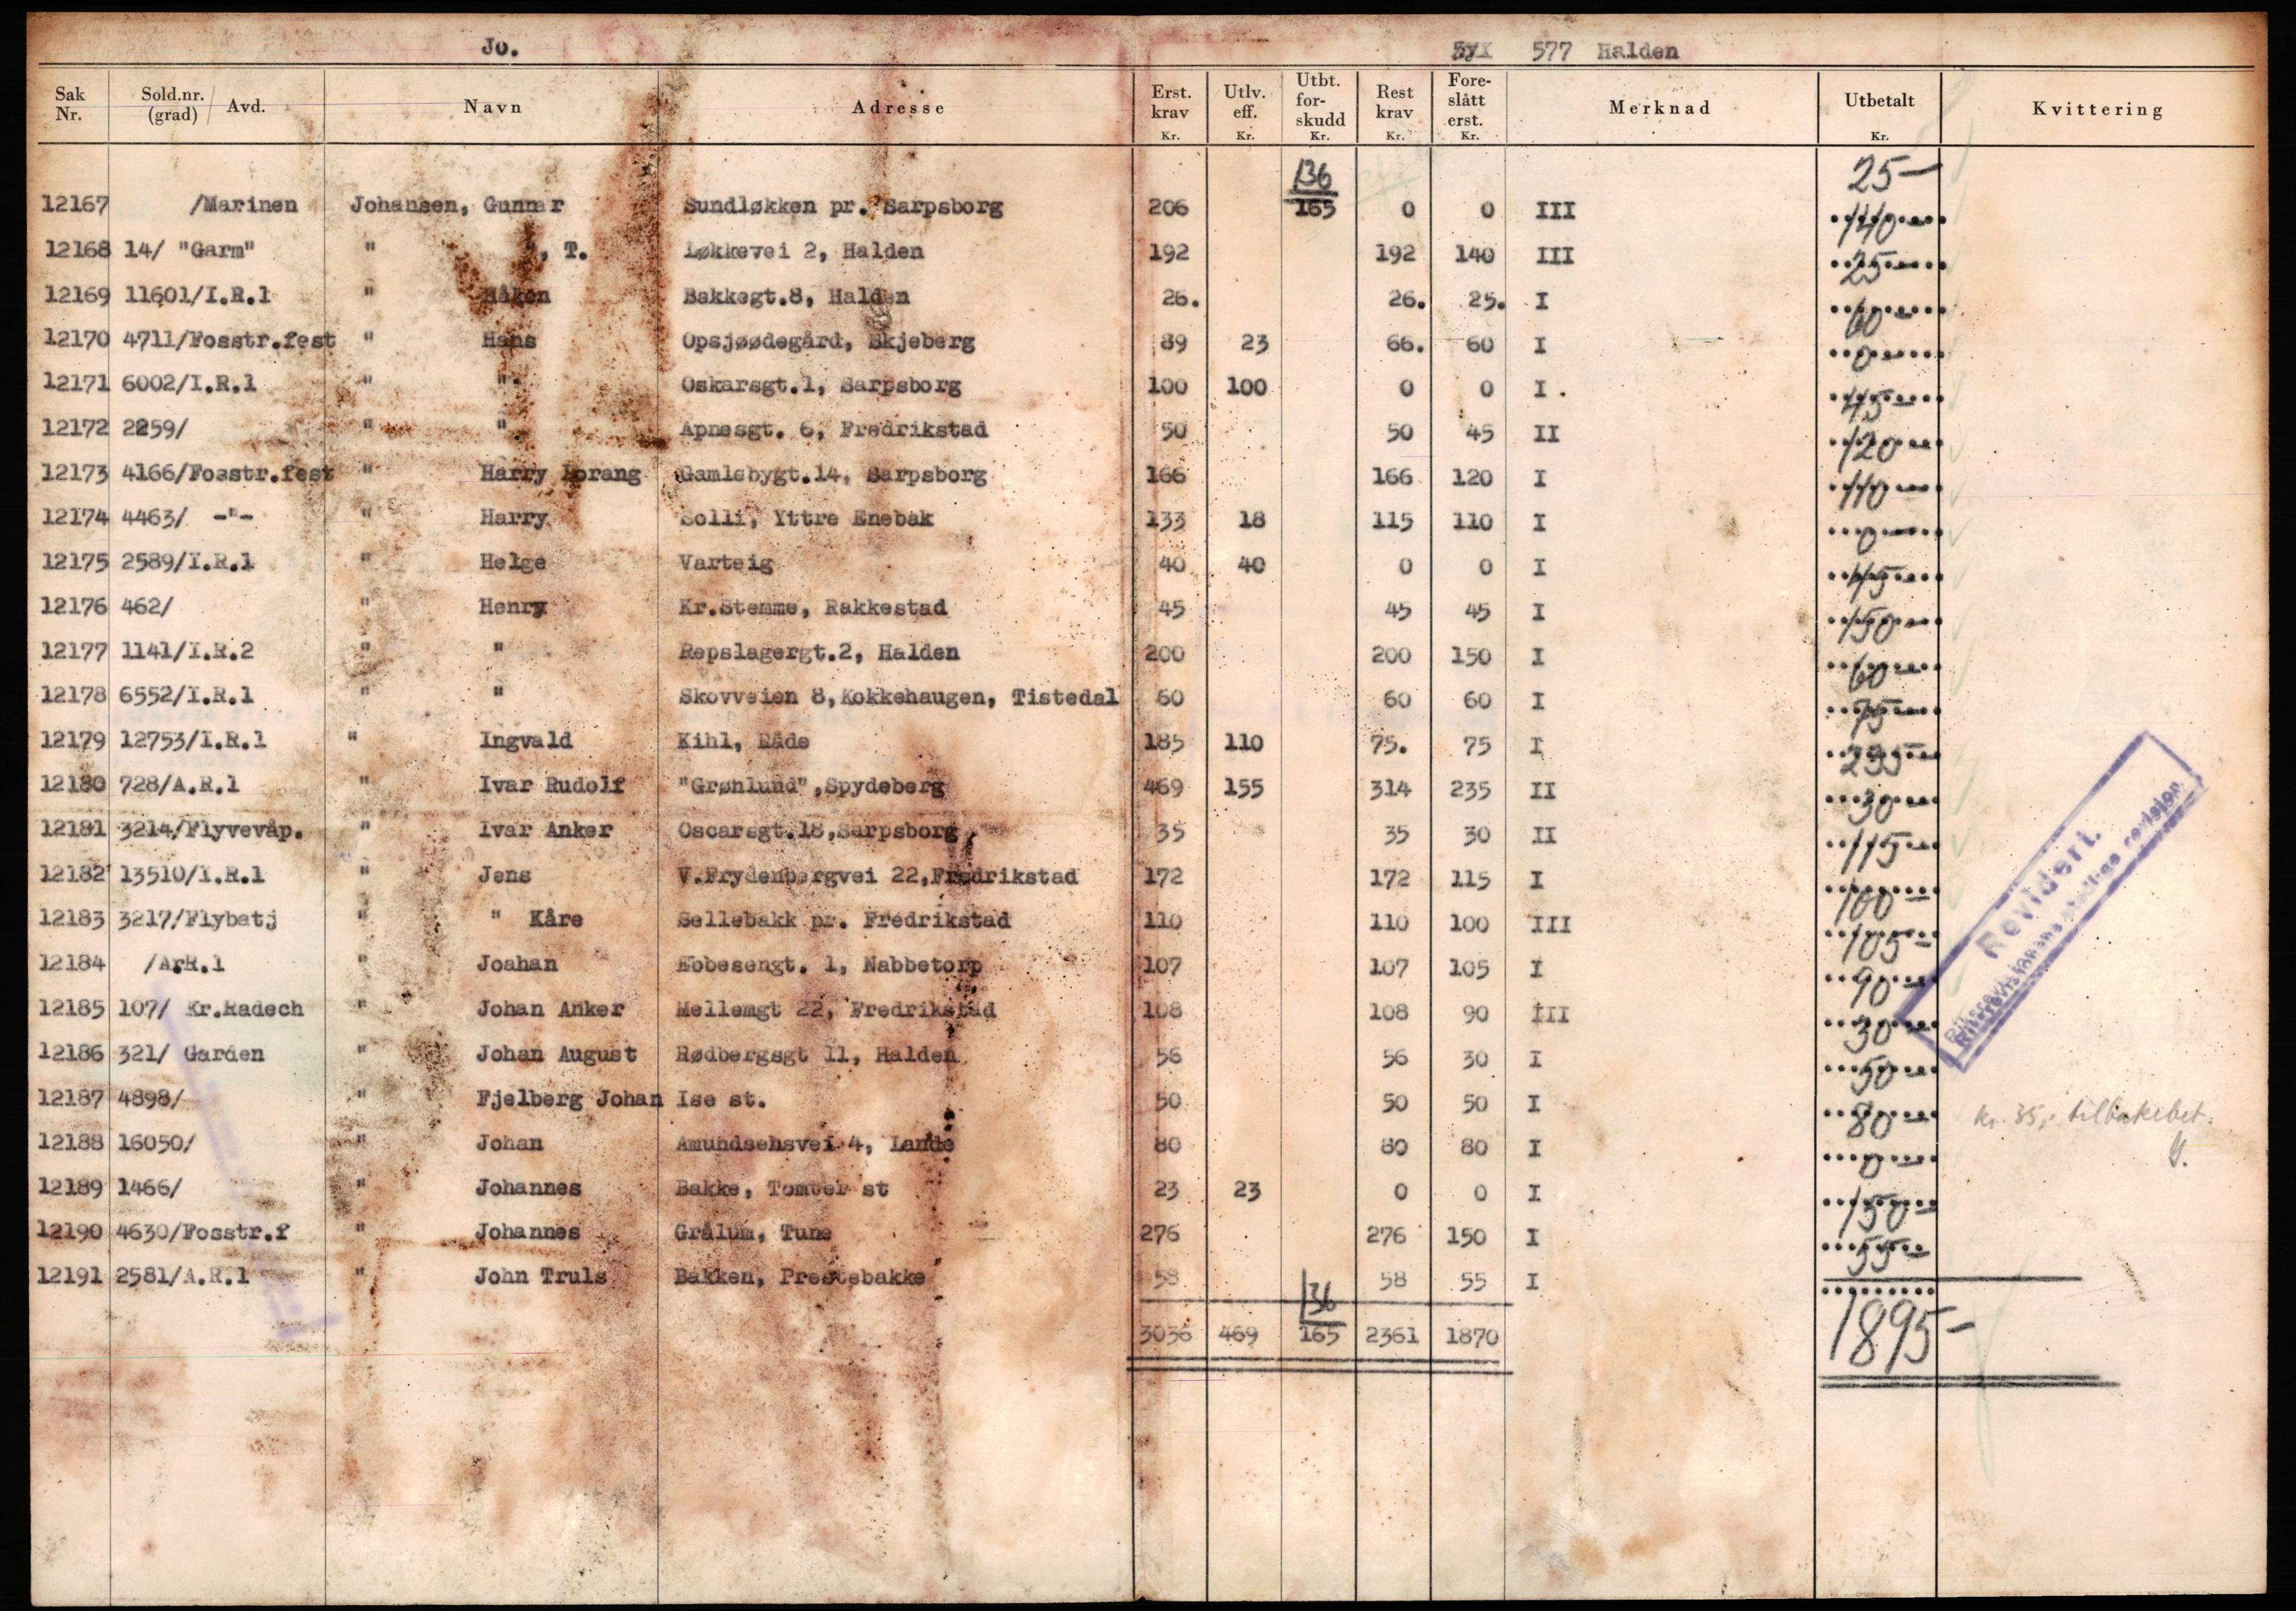 Jo. 577 Halden
Sak Nr. Sold.nr. (grad) / Avd. Navn Adresse Erst. krav Kr. Utlv. eff. Kr. Utbt. for- skudd Kr. Rest krav Kr. Fore- slått erst. Kr. Merknad Utbetalt Kr. Kvittering
136 25-
12167 /Marinen Johansen, Gunnar Sundløkken pr. Sarpsborg 206 165 0 0 III 140-
12168 14/ "Garm" " ", T. Løkkevei 2, Halden 192 192 140 III 25-
12169 11601/I.R.1 " Håkon Bakkegt.8, Halden 26. 26. 25. I 60-
12170 4711/Fosstr.fest " Hans Opsjøødegård, Skjeberg 89 23 66. 60 I 0-
12171 6002/I.R.1 " " Oskarsgt.1, Sarpsborg 100 100 0 0 I. 45-
12172 2259/ " " Apnesgt. 6, Fredrikstad 50 50 45 II 120-
12173 4166/Fosstr.fest " Harry Lorang Gamlebygt.14, Sarpsborg 166 166 120 I 110-
12174 4463/ -"- " Harry Solli, Yttre Enebak 133 18 115 110 I 0-
12175 2589/I.R.1 " Helge Varteig 40 40 0 0 I 45-
12176 462/ " Henry Kr.Stemme, Rakkestad 45 45 45 I 150-
12177 1141/I.R.2 " " Repslagergt.2, Halden 200 200 150 I 60-
12178 6552/I.R.1 " " Skovveien 8,Kokkehaugen, Tistedal 60 60 60 I 75-
12179 12753/I.R.1 " Ingvald Kihl, Råde 185 110 75. 75 I 235-
12180 728/A.R.1 " Ivar Rudolf "Grønlund",Spydeberg 469 155 314 235 II 30-
12181 3214/Flyvevåp. " Ivar Anker Oscarsgt.18,Sarpsborg 35 35 30 II 115-
12182 13510/I.R.1 " Jens V.Frydenbergvei 22,Fredrikstad 172 172 115 I 100-
12183 3217/Flybatj " " Kåre Sellebakk pr. Fredrikstad 110 110 100 III 105-
12184 /ArR.1 " Joahan Fobesengt. 1, Nabbetorp 107 107 105 I 90-
12185 107/ Kr.Radech " Johan Anker Mellemgt 22, Fredrikstad 108 108 90 III 30-
12186 321/ Garden " Johan August Rødbergsgt 11, Halden 56 56 30 I 50-
12187 4898/ " Fjelberg Johan Ise st. 50 50 50 I 80- kr. 35,- tilbakebet.
12188 16050/ " Johan Amundsensvei 4, Lande 80 80 80 I 0-
12189 1466/ " Johannes Bakke, Tomter st 23 23 0 0 I 150-
12190 4630/Fosstr.f " Johannes Grålum, Tune 276 276 150 I 55-
12191 2581/A.R.1 " John Truls Bakken, Prestebakke 58 58 55 I
136
3036 469 165 2361 1870 1895-
Revidert.
Riksrevisjonens stedlige revisjon